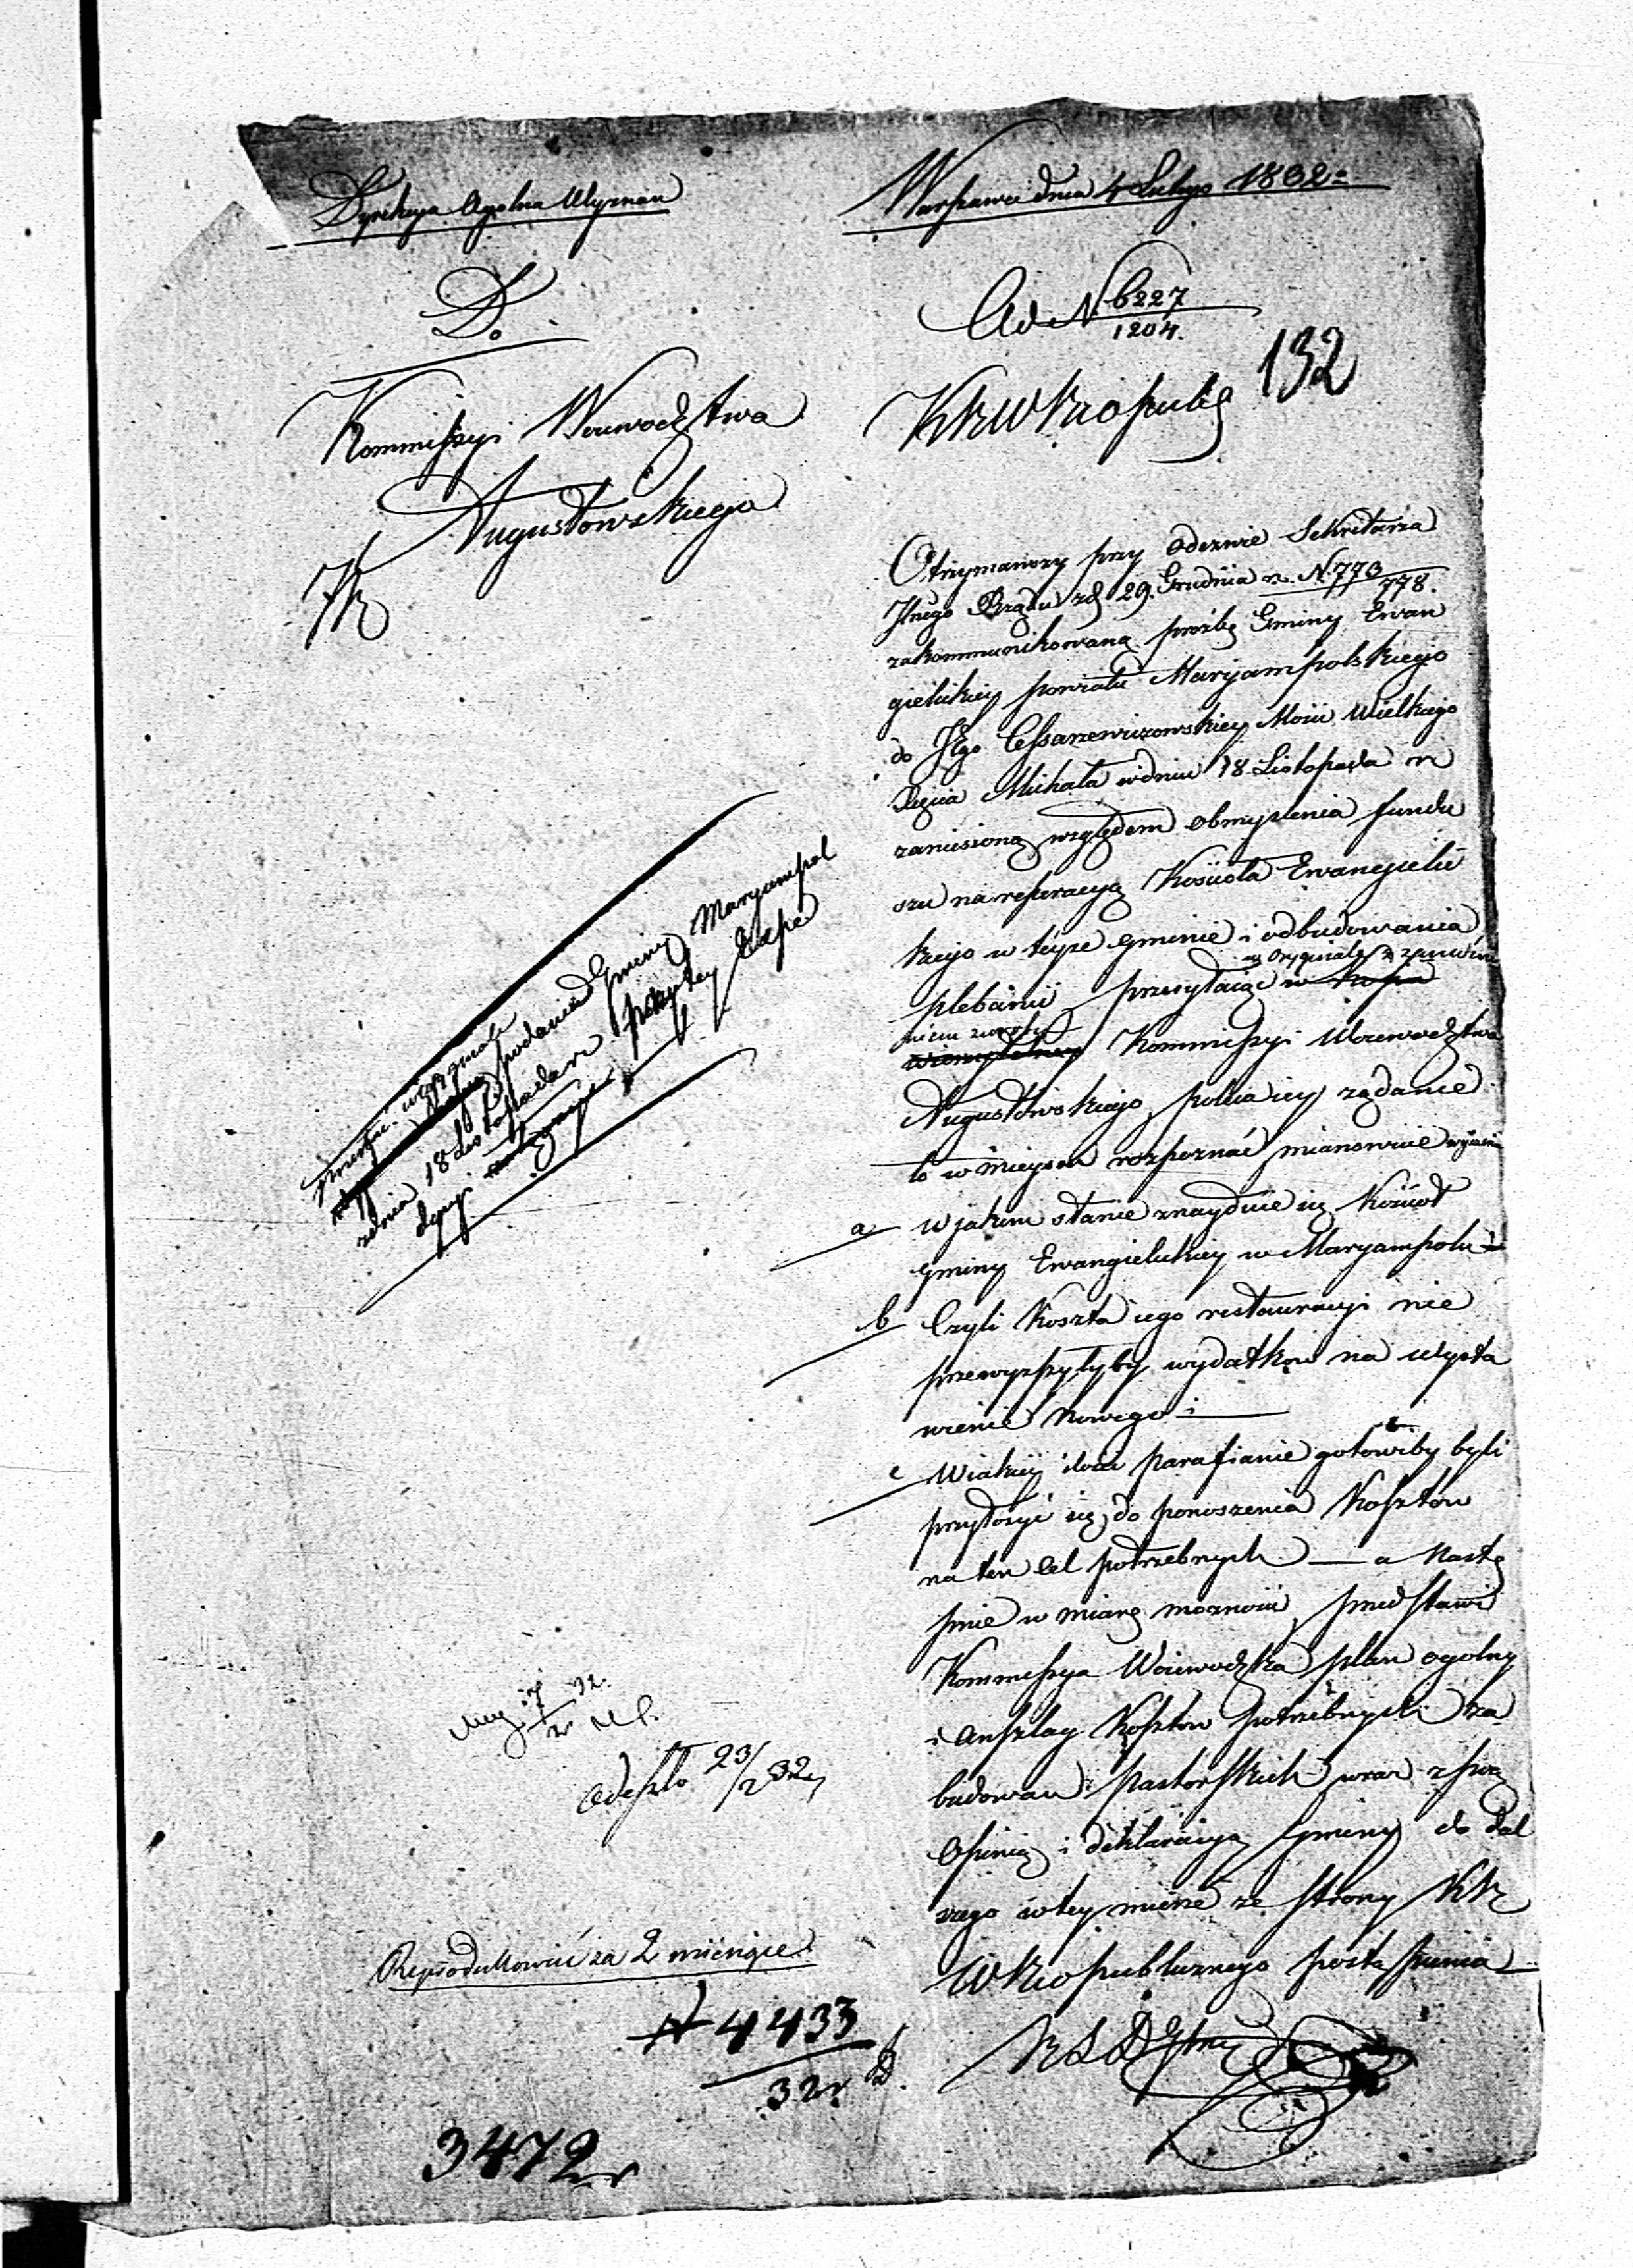 Dyrekcya Ogolna Wyznań
Warszawa dnia 4 Lutego 1832
Do
Ad N 6227
1204.
132
Kommissyi Wouwodztwa
Augustowskiego
Otrzymawszy przy odezwie Sekretarza
Rządu 29. Grudnia N. 770
778.
zakommunikowaną prozbę Gminy Ewan
gielickiey powiatu Maryampolskiego
do Cessarzewiczowskiey Mości Wielkiego
Xięcia Michała w dniu 18 Listopada
zaniesioną względem obmyslenia fundu
szu na reperacyą Kościoła Ewangelic
kiego w teyze gminie i odbudowania
plebanii przesyłaiąc w
Kommissyi Woiewodztwa
Augustowskiego poleca iey ządanie
to w mieyscu rozpoznać mianowicie
a w jakim stanie znayduie się Kościoł
Gminy Ewangielickiey w Maryampolu
b Czyli Koszta iego restauracyi nie
przewyzszyłyby wydatkow na wysta
wienie nowego i
c W iakiey ilości parafianie gotowiby byli
przyłożyć się do ponoszenia Kosztow
na ten cel potrzebnych — a nastę
pnie w miarę mozności przedstawi
Kommissya Woiewodzka plan ogolny
i anszlag Kosztow potrzebnych za
budowań pastorskich wraz z swą
opinią i deklaracyą Gminy do dal
szego w tey mierze ze strony KR
postąpienia
podanie Gminy Maryampol
z dnia 18 Listopada
odeszło 23/2 32
Reprodukować za 2 miesiące
N 4433
32
3472